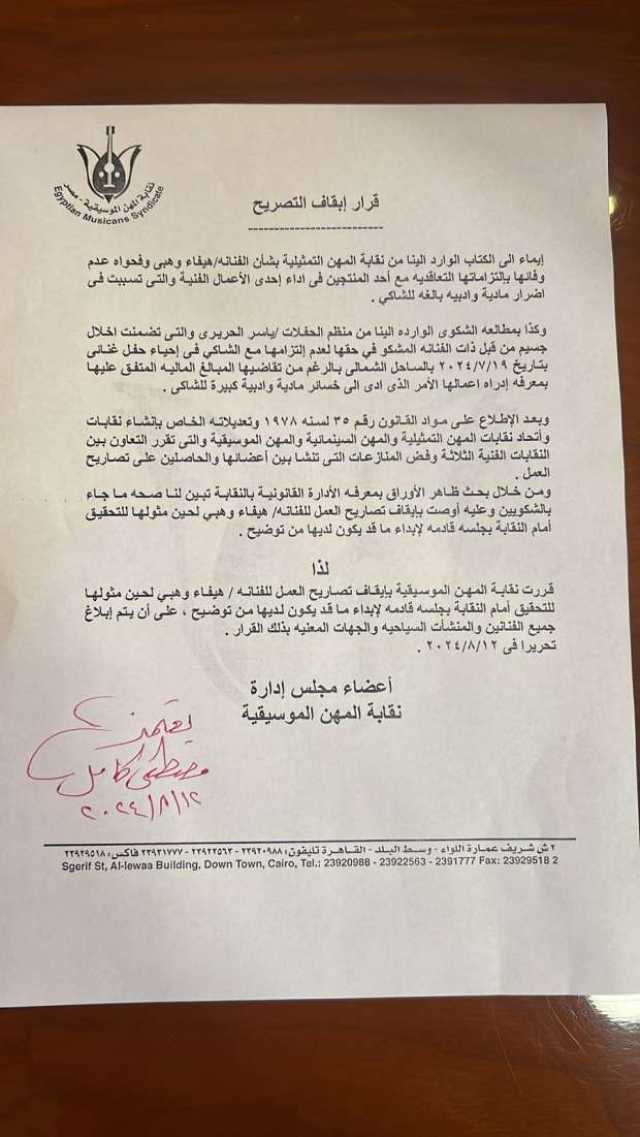 نقابة المهن الموسيقية - مصر
Egyptian Musicans Syndicate
قرار إيقاف التصريح
إيماء الى الكتاب الوارد الينا من نقابة المهن التمثيلية بشأن الفنانه/هيفاء وهبى وفحواه عدم
وفائها بإلتزاماتها التعاقديه مع أحد المنتجين فى اداء إحدى الأعمال الفنية والتى تسببت فى
اضرار مادية وادبيه بالغه للشاكي .
وكذا بمطالعه الشكوى الوارده الينا من منظم الحفلات /ياسر الحريرى والتى تضمنت اخلال
جسيم من قبل ذات الفنانه المشكو في حقها لعدم إلتزامها مع الشاكي فى إحياء حفل غنائى
بتاريخ ٢٠٢٤/٧/١٩ بالساحل الشمالى بالرغم من تقاضيها المبالغ الماليه المتفق عليها
بمعرفه إدراه اعمالها الأمر الذى ادى الى خسائر مادية وادبية كبيرة للشاكى .
وبعد الإطلاع على مواد القانون رقم ٣٥ لسنه ١٩٧٨ وتعديلاته الخاص بإنشاء نقابات
وأتحاد نقابات المهن التمثيلية والمهن السينمائية والمهن الموسيقية والتى تقرر التعاون بين
النقابات الفنية الثلاثة وفض المنازعات التى تنشا بين أعضائها والحاصلين على تصاريح
العمل .
ومن خلال بحث ظاهر الأوراق بمعرفه الأدارة القانونية بالنقابة تبين لنا صحه ما جاء
بالشكويين وعليه أوصت بإيقاف تصاريح العمل للفنانه/ هيفاء وهبي لحين مثولها للتحقيق
أمام النقابة بجلسه قادمه لإبداء ما قد يكون لديها من توضيح .
لذا
قررت نقابة المهن الموسيقية بإيقاف تصاريح العمل للفنانه / هيفاء وهبي لحين مثولها
للتحقيق أمام النقابة بجلسه قادمه لإبداء ما قد يكون لديها من توضيح ، على أن يتم إبلاغ
جميع الفنانين والمنشأت السياحيه والجهات المعنيه بذلك القرار .
تحريرا فى ٢٠٢٤/٨/١٢ .
أعضاء مجلس إدارة
نقابة المهن الموسيقية
يعتمد
مصطفى كامل
٢٠٢٤/٨/١٢
٢ ش شريف عمارة اللواء - وسط البلد - القاهرة تليفون: ٢٣٩٢٠٩٨٨ - ٢٣٩٢٢٥٦٣ - ٢٣٩٣١٧٧٧ فاكس: ٢٣٩٢٩٥١٨
Sgerif St, Al-lewaa Building, Down Town, Cairo, Tel.: 23920988 - 23922563 - 2391777 Fax: 23929518 2